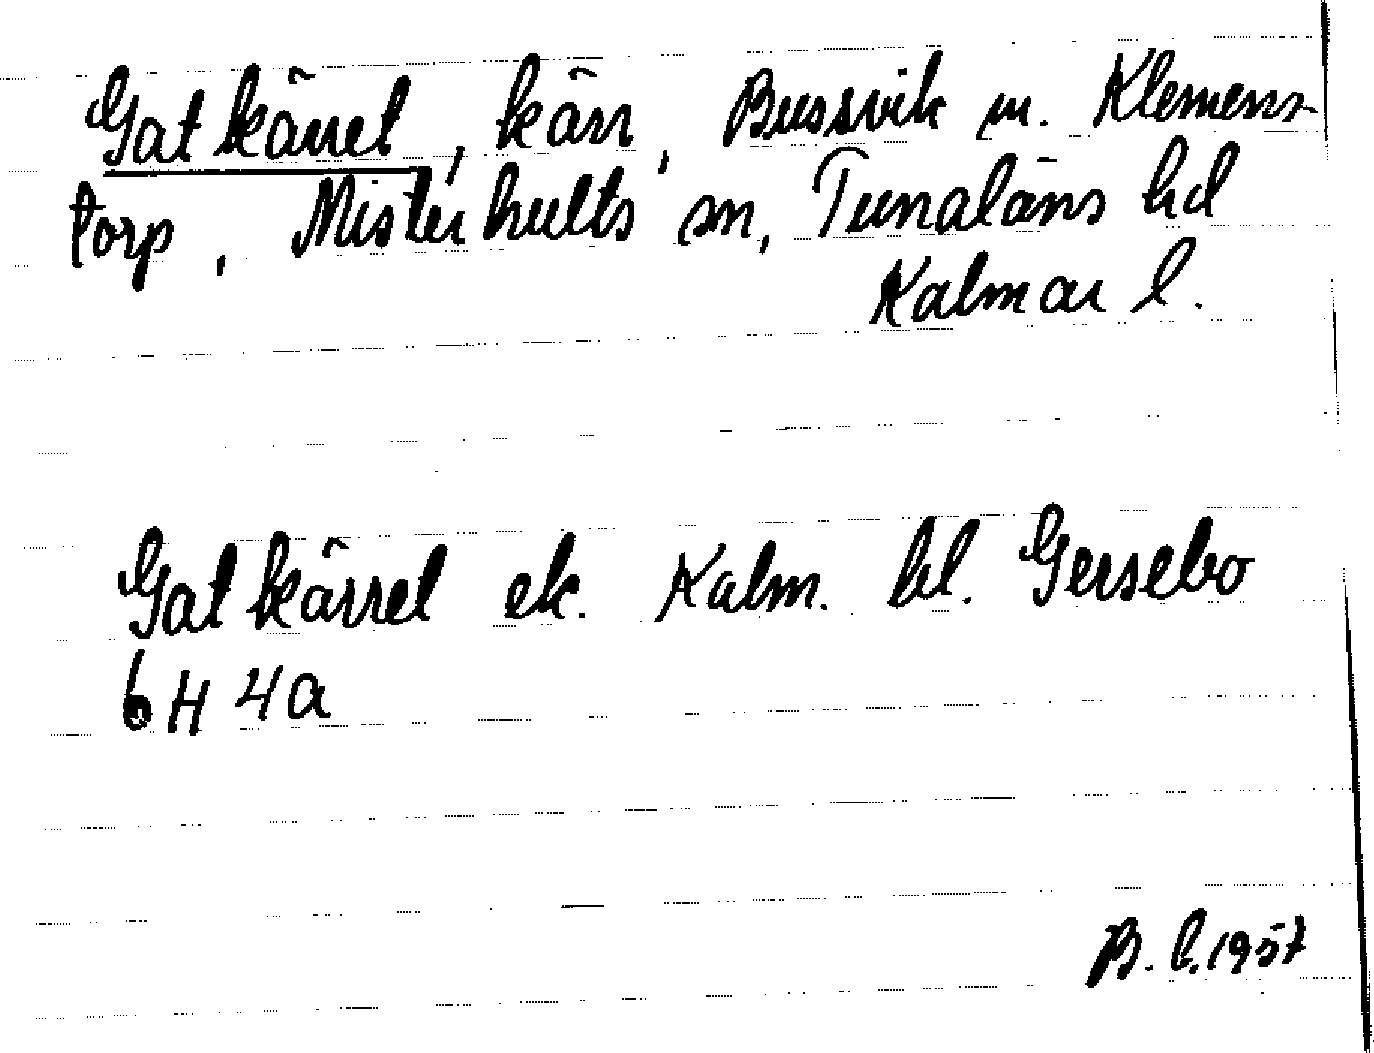 Gatkärret, kärr, Bussvik m. Klemens-
torp, Misterhults sn, Tunaläns hd
Kalmar l.
Gatkärret ek. Kalm. bl. Gersebo
6H 4a
B. L. 1957